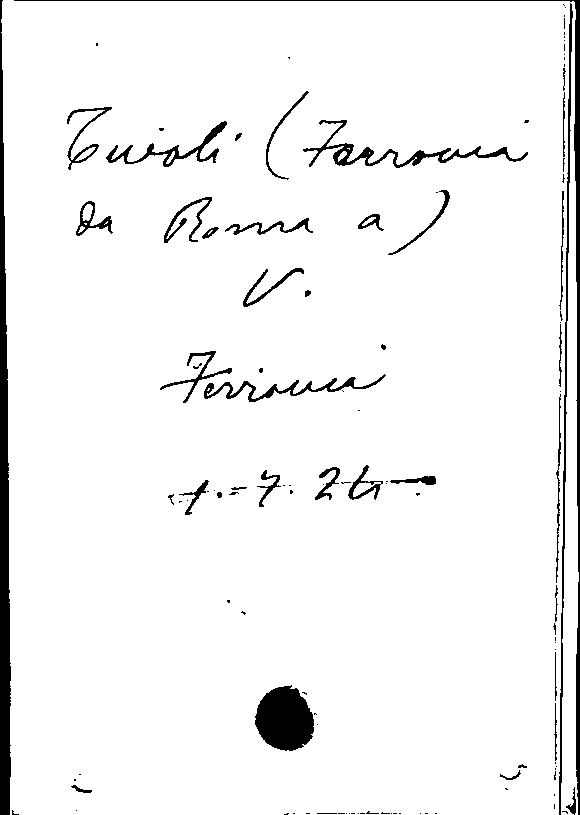 Tivoli (Ferrovia
da Roma a)
V.
Ferrovia